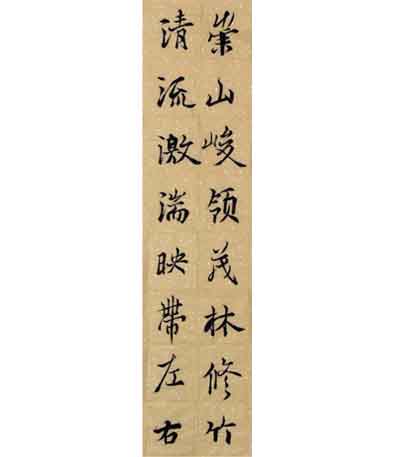 崇山峻領茂林修竹
清流激湍映帶左右